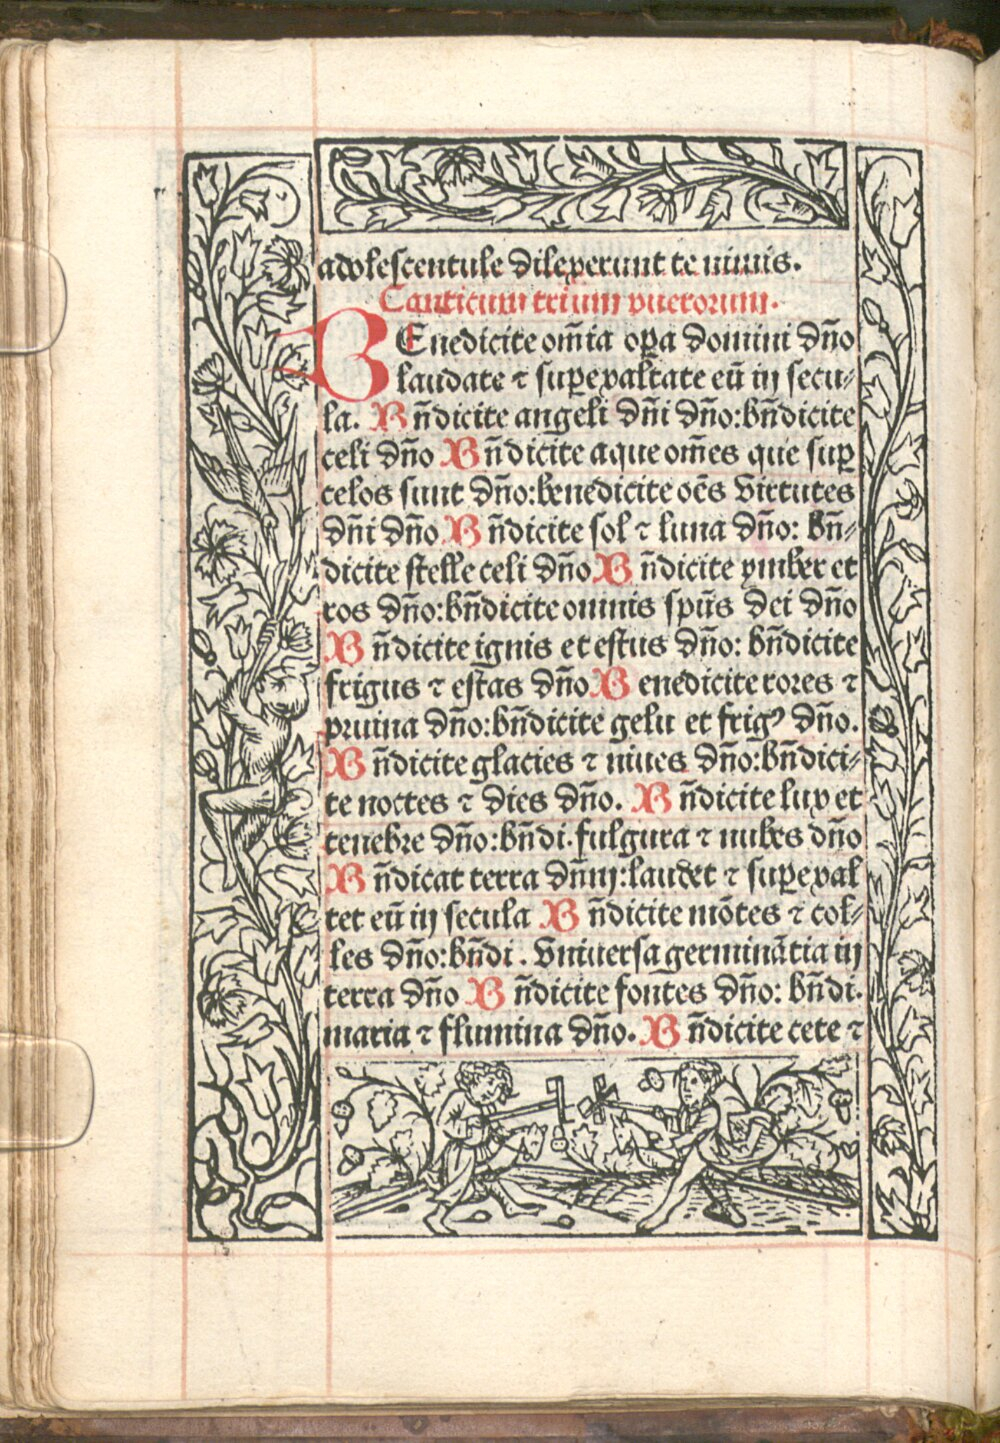 adolescentule dilexerunt te nimis.
Canticum trium puerorum.
BEnedicite om̄ia opa domini dn̄o
laudate ⁊ supexaltate eū in secu⸗
la. Bn̄dicite angeli dn̄i dn̄o:bn̄dicite
celi dn̄o Bn̄dicite aque om̄es que sup
celos sunt dn̄o:benedicite oēs Virtutes
dn̄i dn̄o Bn̄dicite sol ⁊ luna dn̄o: bn̄⸗
dicite stelle celi dn̄o Bn̄dicite ymber et
ros dn̄o:bn̄dicite omnis spūs dei dn̄o
Bn̄dicite ignis et estus dn̄o: bn̄dicite
frigus ⁊ estas dn̄o Benedicite rores ⁊
pruina dn̄o:bn̄dicite gelu et frigꝰ dn̄o.
Bn̄dicite glacies ⁊ niues dn̄o:bn̄dici⸗
te noctes ⁊ dies dn̄o. Bn̄dicite lux et
tenebre dn̄o:bn̄di.fulgura ⁊ nubes dn̄o
Bn̄dicat terra dn̄m:laudet ⁊ supexal
tet eū in secula Bn̄dicite mōtes ⁊ col⸗
les dn̄o:bn̄di. Vniuersa germinātia in
terra dn̄o Bn̄dicite fontes dn̄o: bn̄di.
maria ⁊ flumina dn̄o. Bn̄dicite cete ⁊